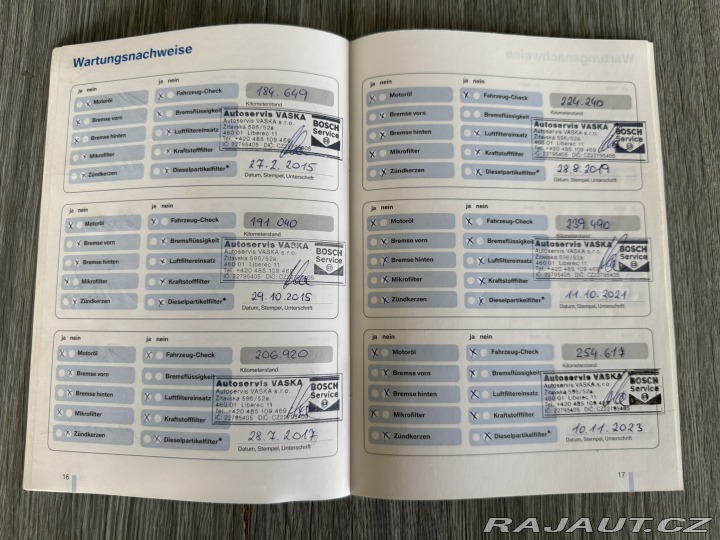 Wartungsnachweise
ja nein
ja nein
Motoröl
Fahrzeug-Check
184.649
Kilometerstand
Bremse vorn
Bremsflüssigkeit
Autoservis VASKA
Autoservis VASKA s.r.o.
Žitavská 595/52a
460 01 Liberec 11
Tel. +420 485 109 469
IČ: 22795405 DIČ: CZ22795405
BOSCH
Service
Bremse hinten
Luftfiltereinsatz
Mikrofilter
Kraftstofffilter
27.2.2015
Zündkerzen
Dieselpartikelfilter*
Datum, Stempel, Unterschrift
ja nein
ja nein
Motoröl
Fahrzeug-Check
191.040
Kilometerstand
Bremse vorn
Bremsflüssigkeit
Autoservis VASKA
Autoservis VASKA s.r.o.
Žitavská 595/52a
460 01 Liberec 11
Tel. +420 485 109 469
IČ: 22795405 DIČ: CZ22795405
BOSCH
Service
Bremse hinten
Luftfiltereinsatz
Mikrofilter
Kraftstofffilter
29.10.2015
Zündkerzen
Dieselpartikelfilter*
Datum, Stempel, Unterschrift
ja nein
ja nein
Motoröl
Fahrzeug-Check
206.920
Kilometerstand
Bremse vorn
Bremsflüssigkeit
Autoservis VASKA
Autoservis VASKA s.r.o.
Žitavská 595/52a
460 01 Liberec 11
Tel. +420 485 109 469
IČ: 22795405 DIČ: CZ22795405
BOSCH
Service
Bremse hinten
Luftfiltereinsatz
Mikrofilter
Kraftstofffilter
28.7.2017
Zündkerzen
Dieselpartikelfilter*
Datum, Stempel, Unterschrift
16
ja nein
ja nein
Motoröl
Fahrzeug-Check
224.240
Kilometerstand
Bremse vorn
Bremsflüssigkeit
Autoservis VASKA
Autoservis VASKA s.r.o.
Žitavská 595/52a
460 01 Liberec 11
Tel. +420 485 109 469
IČ: 22795405 DIČ: CZ22795405
BOSCH
Service
Bremse hinten
Luftfiltereinsatz
Mikrofilter
Kraftstofffilter
28.8.2019
Zündkerzen
Dieselpartikelfilter*
Datum, Stempel, Unterschrift
ja nein
ja nein
Motoröl
Fahrzeug-Check
239.490
Kilometerstand
Bremse vorn
Bremsflüssigkeit
Autoservis VASKA
Autoservis VASKA s.r.o.
Žitavská 595/52a
460 01 Liberec 11
BOSCH
Service
Bremse hinten
Luftfiltereinsatz
Mikrofilter
Kraftstofffilter
11.10.2021
Zündkerzen
Dieselpartikelfilter*
Datum, Stempel, Unterschrift
ja nein
ja nein
Motoröl
Fahrzeug-Check
254.617
Kilometerstand
Bremse vorn
Bremsflüssigkeit
Autoservis VASKA
Autoservis VASKA s.r.o.
Žitavská 595/52a
460 01 Liberec 11
BOSCH
Service
Bremse hinten
Luftfiltereinsatz
Mikrofilter
Kraftstofffilter
10.11.2023
Zündkerzen
Dieselpartikelfilter*
Datum, Stempel, Unterschrift
17
RAJAUT.CZ